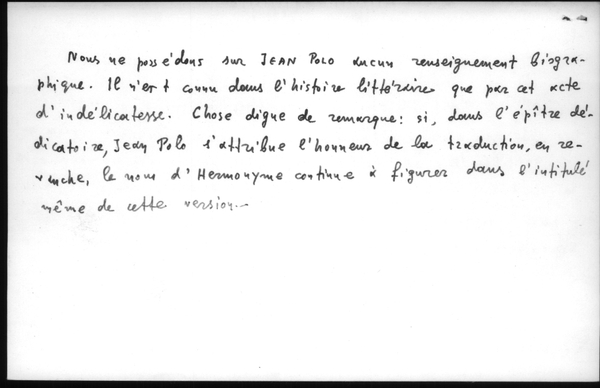 Nous ne possédons sur JEAN POLO aucun renseignement biogra-
phique. Il n'est connu dans l'histoire littéraire que par cet acte
d'indélicatesse. Chose digne de remarque: si, dans l'épître dé-
dicatoire, Jean Polo s'attribue l'honneur de la traduction, en re-
vanche, le nom d'Hermonyme continue à figurer dans l'intitulé
même de cette version.